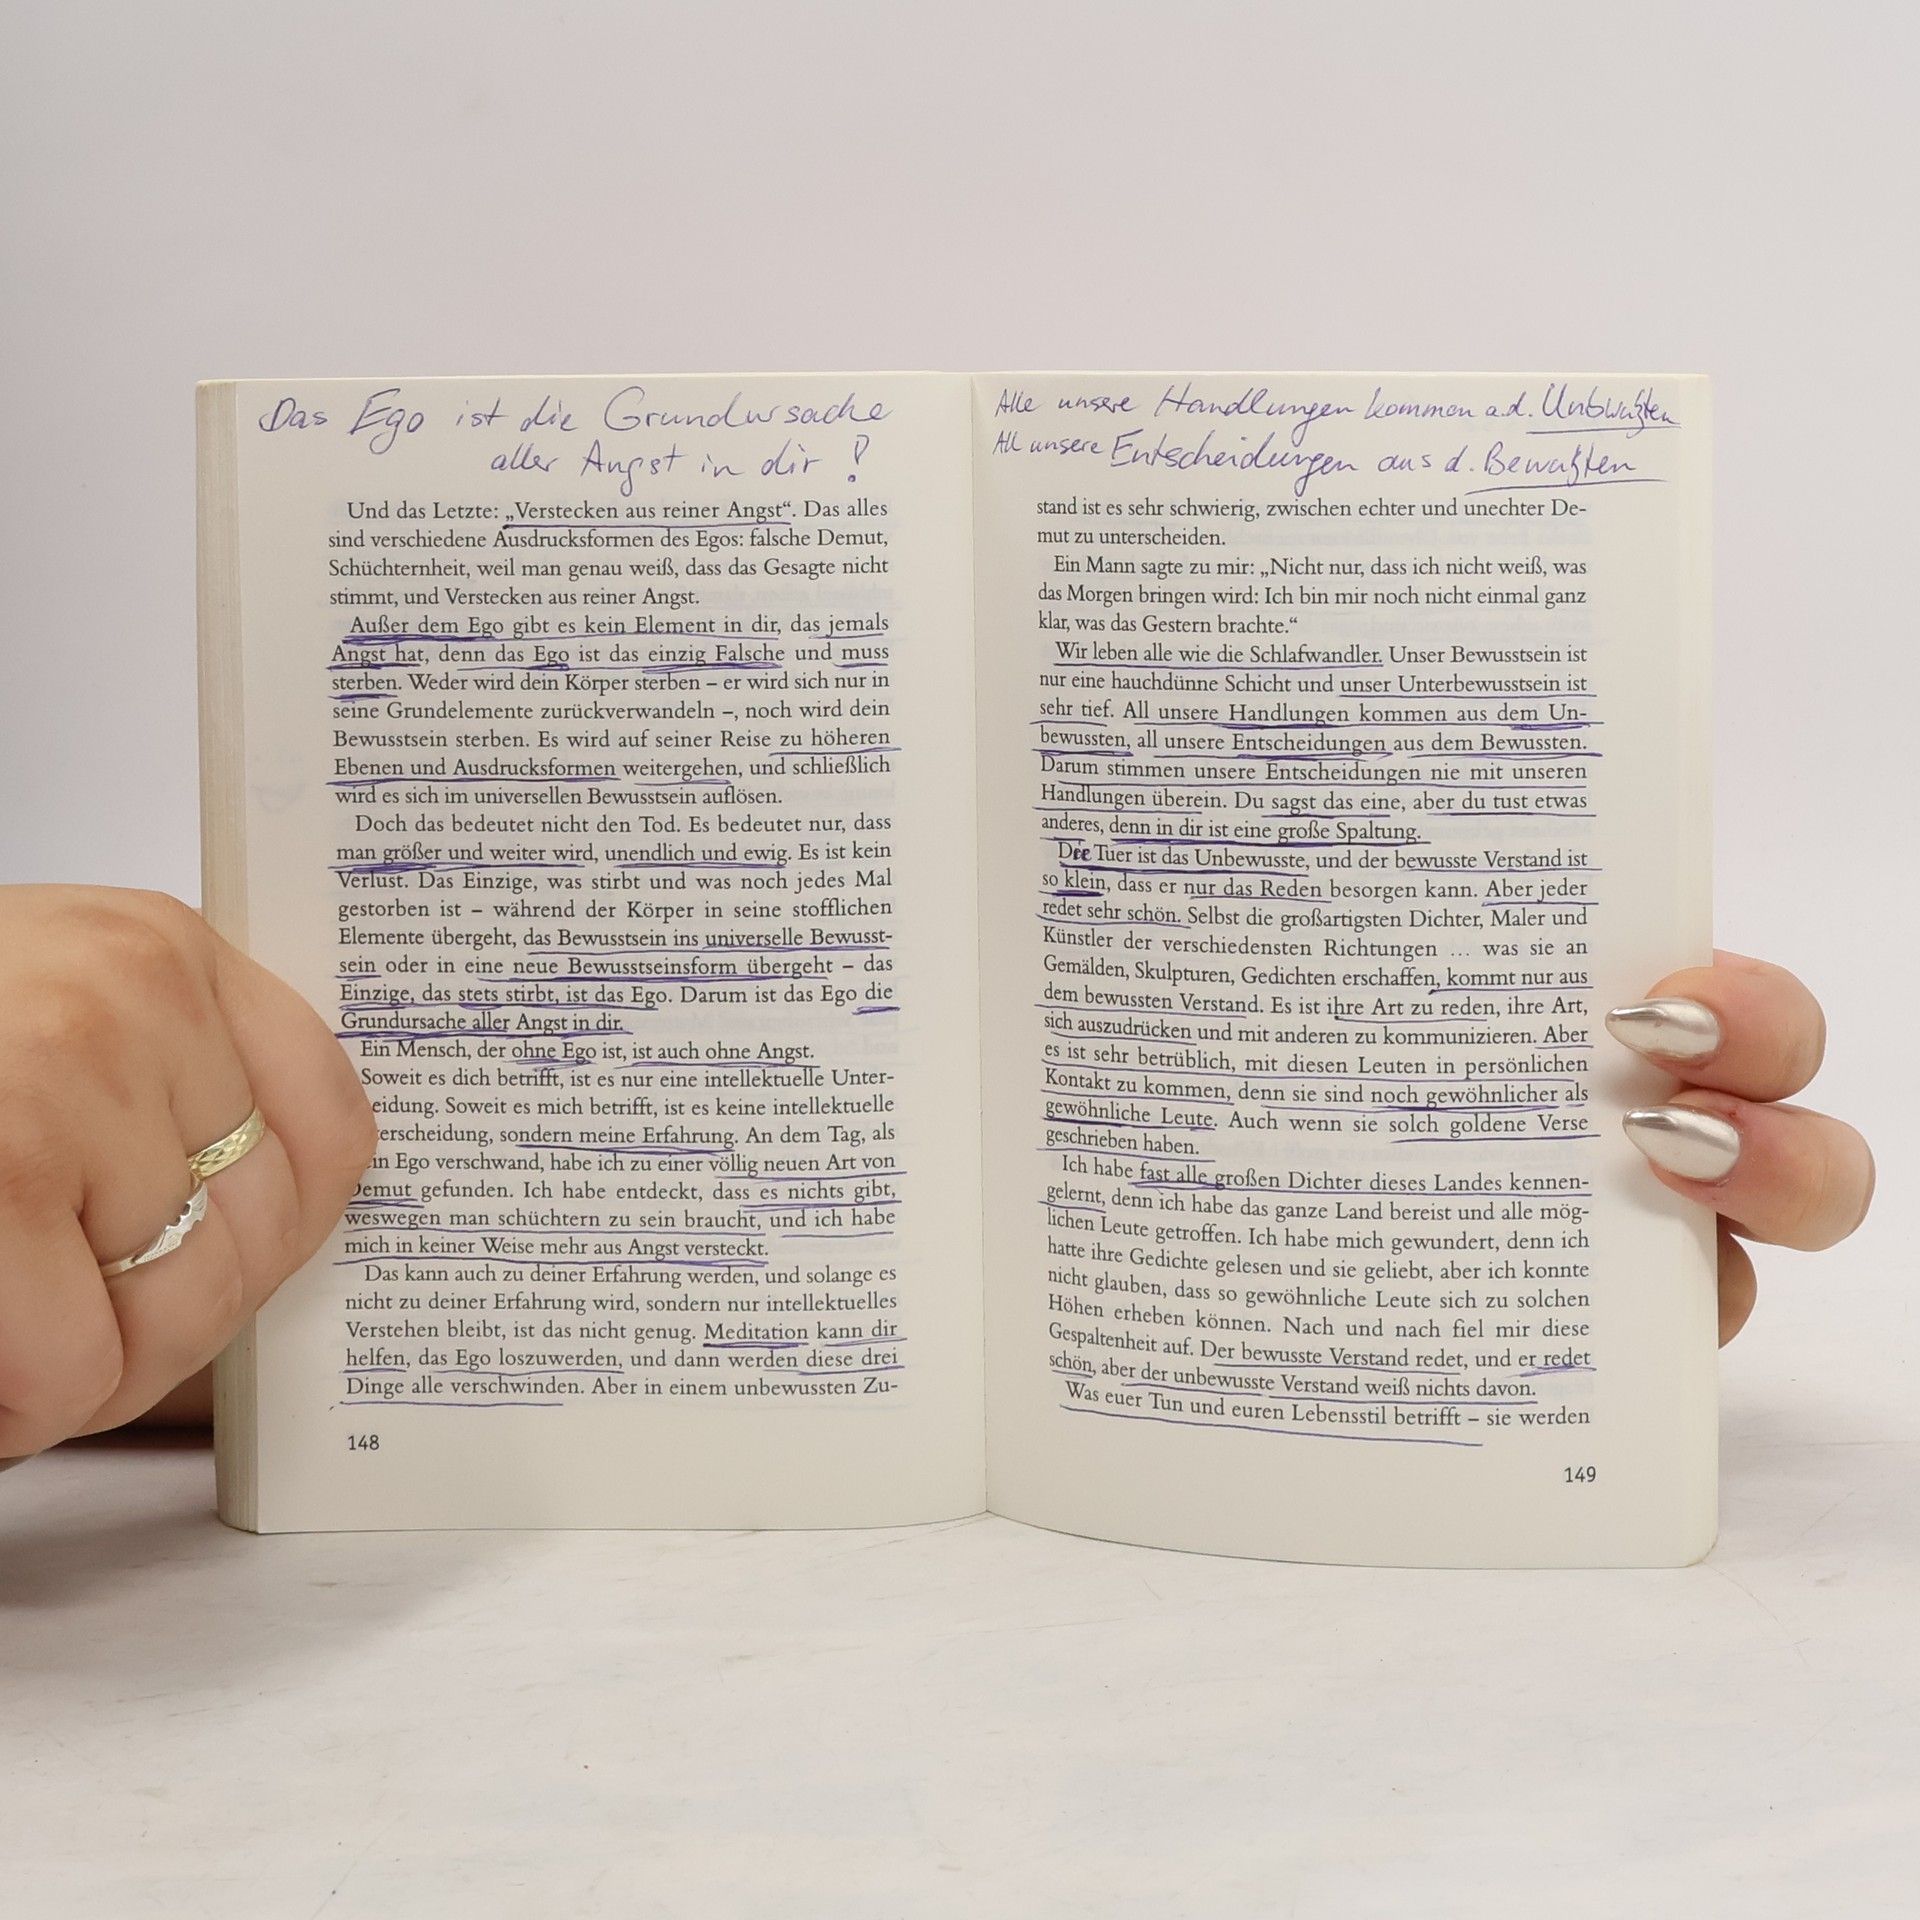 Das Ego ist die Grundursache
aller Angst in dir !
Und das Letzte: „Verstecken aus reiner Angst“. Das alles
sind verschiedene Ausdrucksformen des Egos: falsche Demut,
Schüchternheit, weil man genau weiß, dass das Gesagte nicht
stimmt, und Verstecken aus reiner Angst.
Außer dem Ego gibt es kein Element in dir, das jemals
Angst hat, denn das Ego ist das einzig Falsche und muss
sterben. Weder wird dein Körper sterben – er wird sich nur in
seine Grundelemente zurückverwandeln –, noch wird dein
Bewusstsein sterben. Es wird auf seiner Reise zu höheren
Ebenen und Ausdrucksformen weitergehen, und schließlich
wird es sich im universellen Bewusstsein auflösen.
Doch das bedeutet nicht den Tod. Es bedeutet nur, dass
man größer und weiter wird, unendlich und ewig. Es ist kein
Verlust. Das Einzige, was stirbt und was noch jedes Mal
gestorben ist – während der Körper in seine stofflichen
Elemente übergeht, das Bewusstsein ins universelle Bewusst-
sein oder in eine neue Bewusstseinsform übergeht – das
Einzige, das stets stirbt, ist das Ego. Darum ist das Ego die
Grundursache aller Angst in dir.
Ein Mensch, der ohne Ego ist, ist auch ohne Angst.
Soweit es dich betrifft, ist es nur eine intellektuelle Unter-
eidung. Soweit es mich betrifft, ist es keine intellektuelle
erscheidung, sondern meine Erfahrung. An dem Tag, als
in Ego verschwand, habe ich zu einer völlig neuen Art von
Demut gefunden. Ich habe entdeckt, dass es nichts gibt,
weswegen man schüchtern zu sein braucht, und ich habe
mich in keiner Weise mehr aus Angst versteckt.
Das kann auch zu deiner Erfahrung werden, und solange es
nicht zu deiner Erfahrung wird, sondern nur intellektuelles
Verstehen bleibt, ist das nicht genug. Meditation kann dir
helfen, das Ego loszuwerden, und dann werden diese drei
Dinge alle verschwinden. Aber in einem unbewussten Zu-
148
Alle unsere Handlungen kommen a.d. Unbwußten
All unsere Entscheidungen aus d. Bewußten
stand ist es sehr schwierig, zwischen echter und unechter De-
mut zu unterscheiden.
Ein Mann sagte zu mir: „Nicht nur, dass ich nicht weiß, was
das Morgen bringen wird: Ich bin mir noch nicht einmal ganz
klar, was das Gestern brachte.“
Wir leben alle wie die Schlafwandler. Unser Bewusstsein ist
nur eine hauchdünne Schicht und unser Unterbewusstsein ist
sehr tief. All unsere Handlungen kommen aus dem Un-
bewussten, all unsere Entscheidungen aus dem Bewussten.
Darum stimmen unsere Entscheidungen nie mit unseren
Handlungen überein. Du sagst das eine, aber du tust etwas
anderes, denn in dir ist eine große Spaltung.
Tuer ist das Unbewusste, und der bewusste Verstand ist
so klein, dass er nur das Reden besorgen kann. Aber jeder
redet sehr schön. Selbst die großartigsten Dichter, Maler und
Künstler der verschiedensten Richtungen … was sie an
Gemälden, Skulpturen, Gedichten erschaffen, kommt nur aus
dem bewussten Verstand. Es ist ihre Art zu reden, ihre Art,
sich auszudrücken und mit anderen zu kommunizieren. Aber
es ist sehr betrüblich, mit diesen Leuten in persönlichen
Kontakt zu kommen, denn sie sind noch gewöhnlicher als
gewöhnliche Leute. Auch wenn sie solch goldene Verse
geschrieben haben.
Ich habe fast alle großen Dichter dieses Landes kennen-
gelernt, denn ich habe das ganze Land bereist und alle mög-
lichen Leute getroffen. Ich habe mich gewundert, denn ich
hatte ihre Gedichte gelesen und sie geliebt, aber ich konnte
nicht glauben, dass so gewöhnliche Leute sich zu solchen
Höhen erheben können. Nach und nach fiel mir diese
Gespaltenheit auf. Der bewusste Verstand redet, und er redet
schön, aber der unbewusste Verstand weiß nichts davon.
Was euer Tun und euren Lebensstil betrifft – sie werden
149